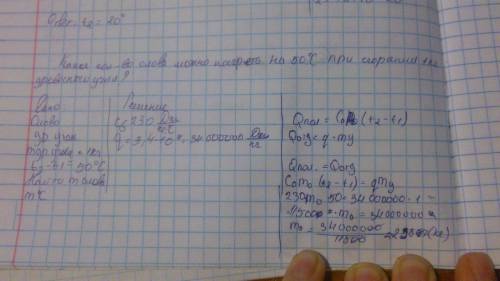 t₂ = 20°
Какое кол-во олова можно нагреть на 50°C при сгорании 1кг
древесного угля?
Дано
Олово
др. угля
t₂-t₁=50°C
Найти m олова
m-?
Решение
c=230
q=3,4·10⁷=34000000 Дж/кг
Qпол = C₀m₀(t₂-t₁)
Qотд = q·mу
Qпол. = Qотд
C₀m₀(t₂-t₁)=qmу
230m₀·50=34000000·1
11500·m₀=34000000
m₀=34000000/11500